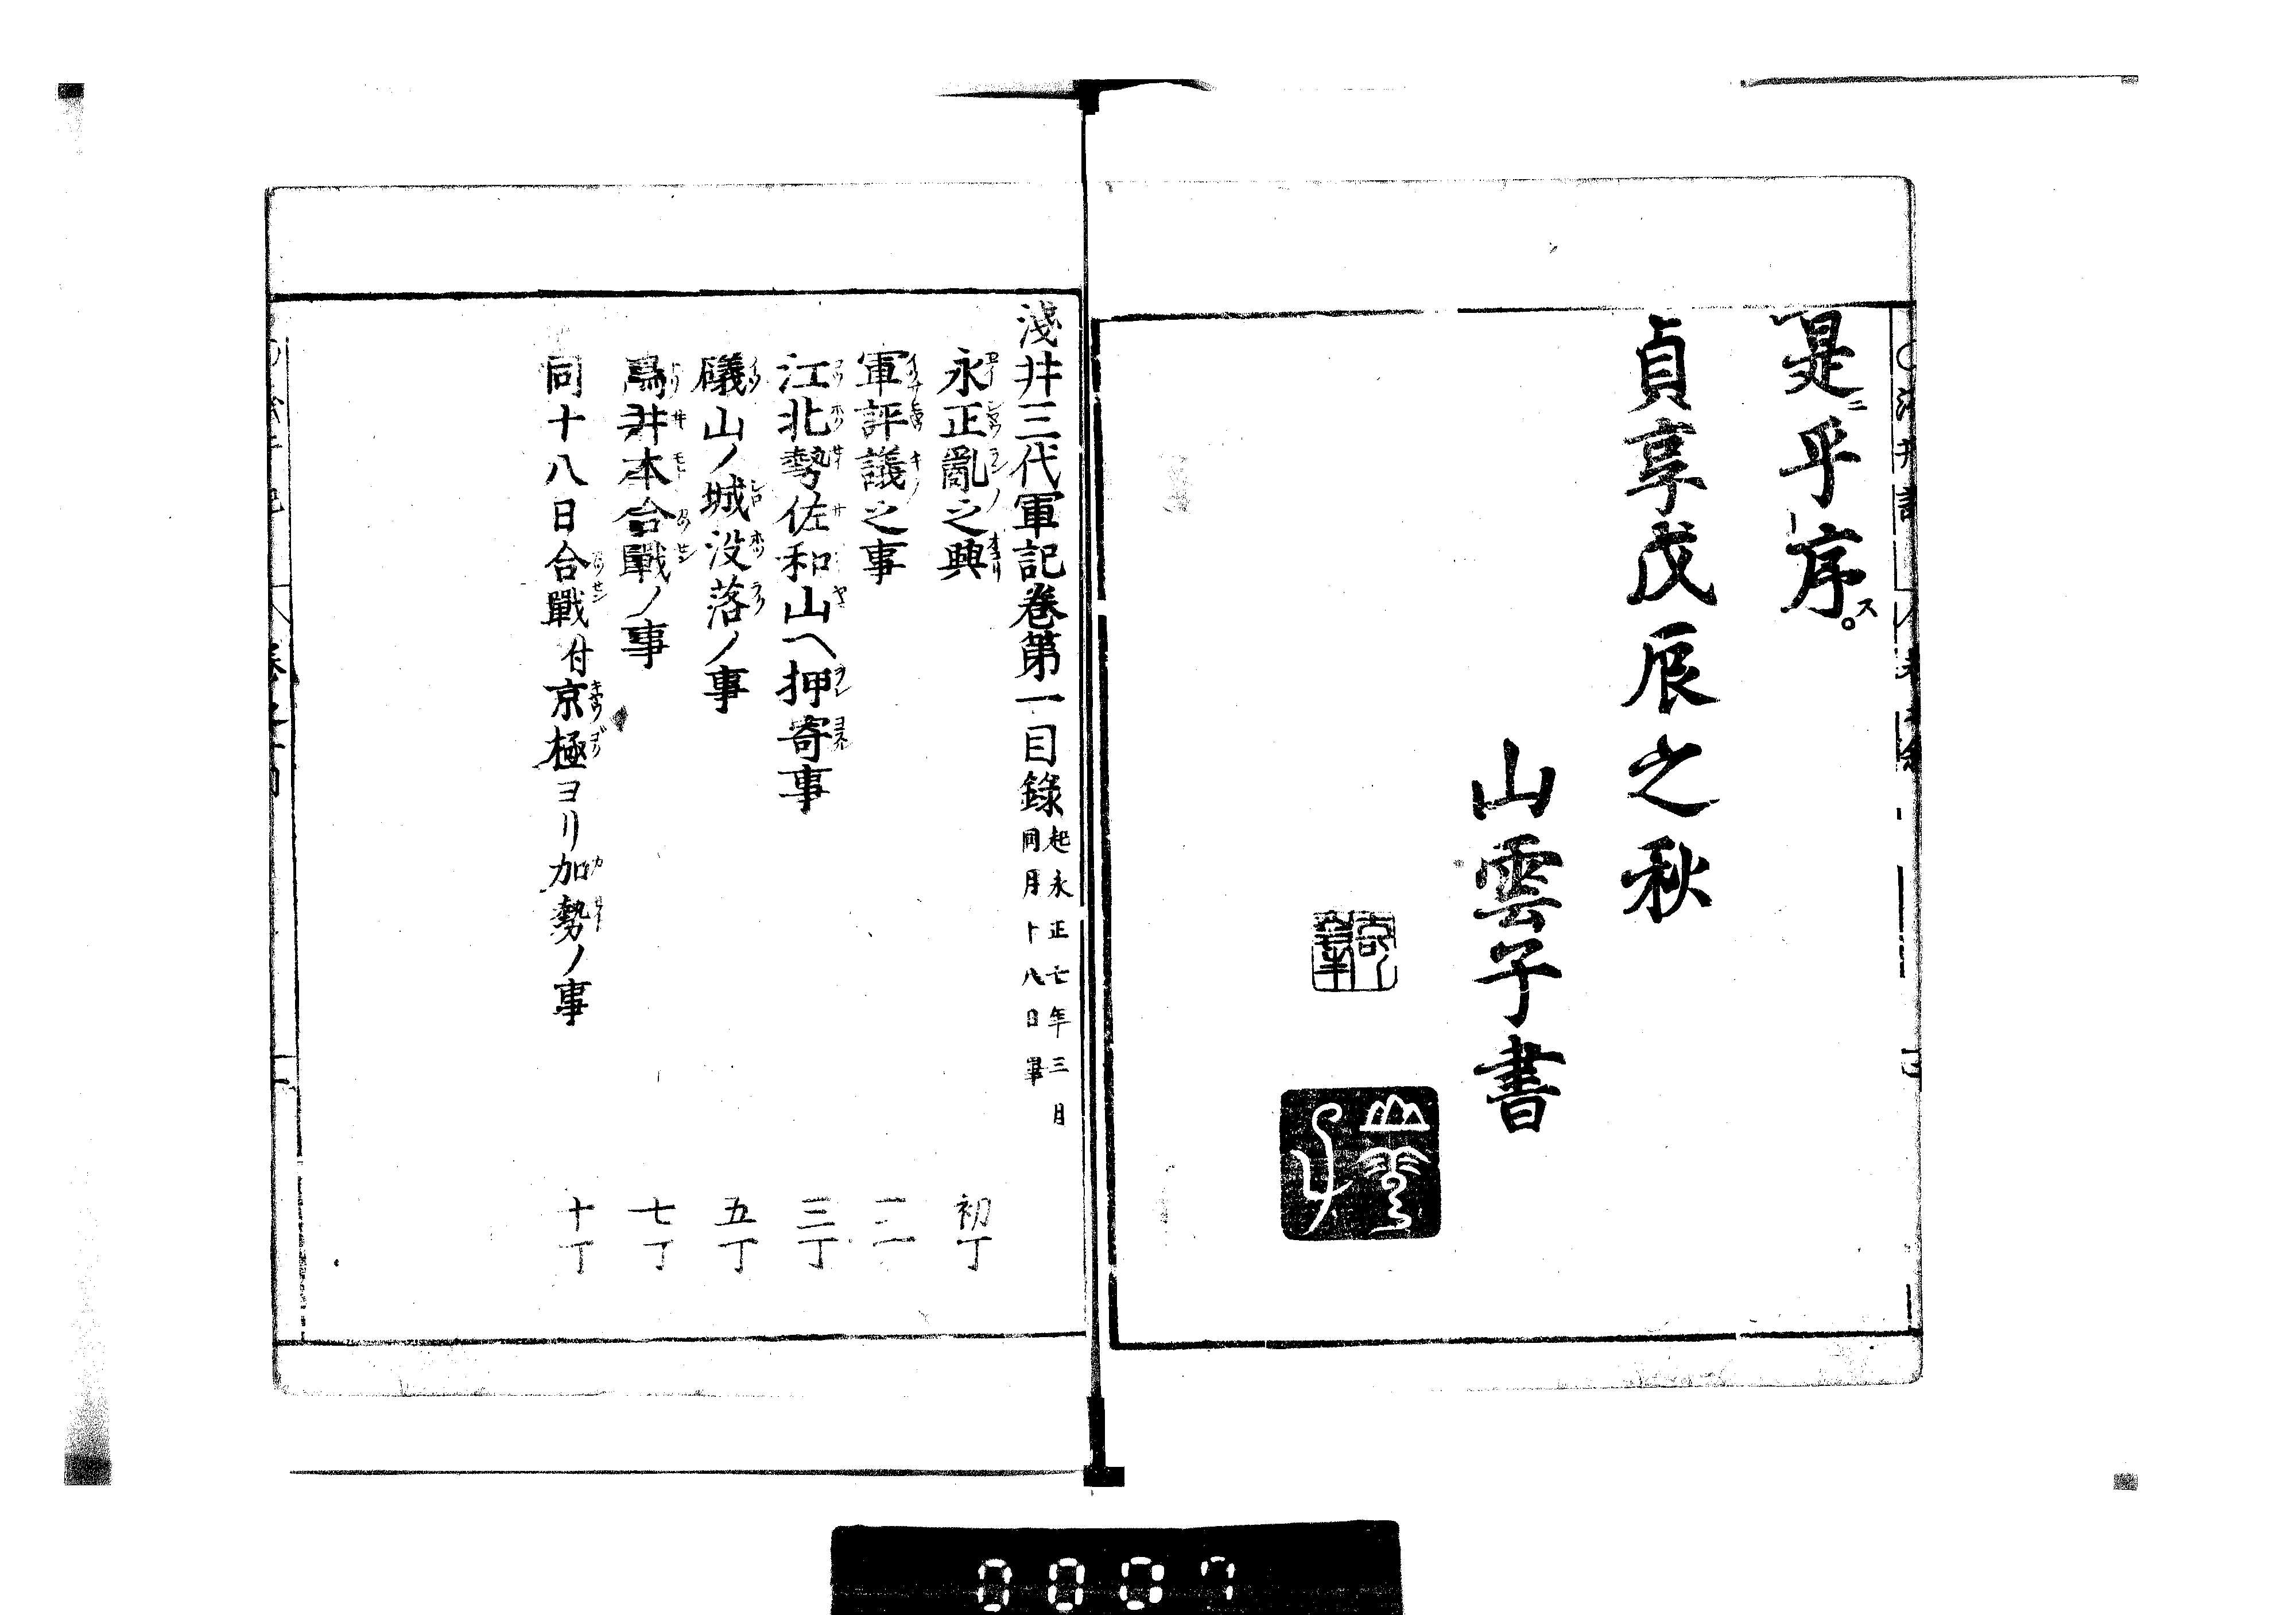 是ニ乎序ス。
貞享戊辰之秋
山雲子書
淺井三代軍記卷第一目錄
起永正七年三月
同月十八日畢
永正亂之興 初丁
軍評議之事 二丁
江北勢佐和山ヘ押寄事 三丁
礒山ノ城没落ノ事 五丁
鳥井本合戰ノ事 七丁
同十八日合戰付京極ヨリ加勢ノ事 十丁
0007